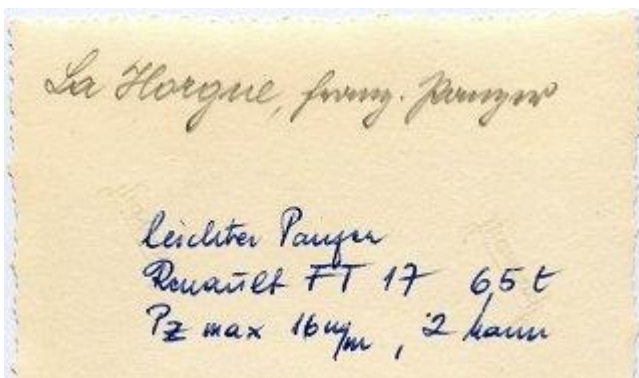 La Horgue, franz. Panzer
Leichter Panzer
Renault FT 17 6,5 t
Pz max 16 m/m, 2 Mann